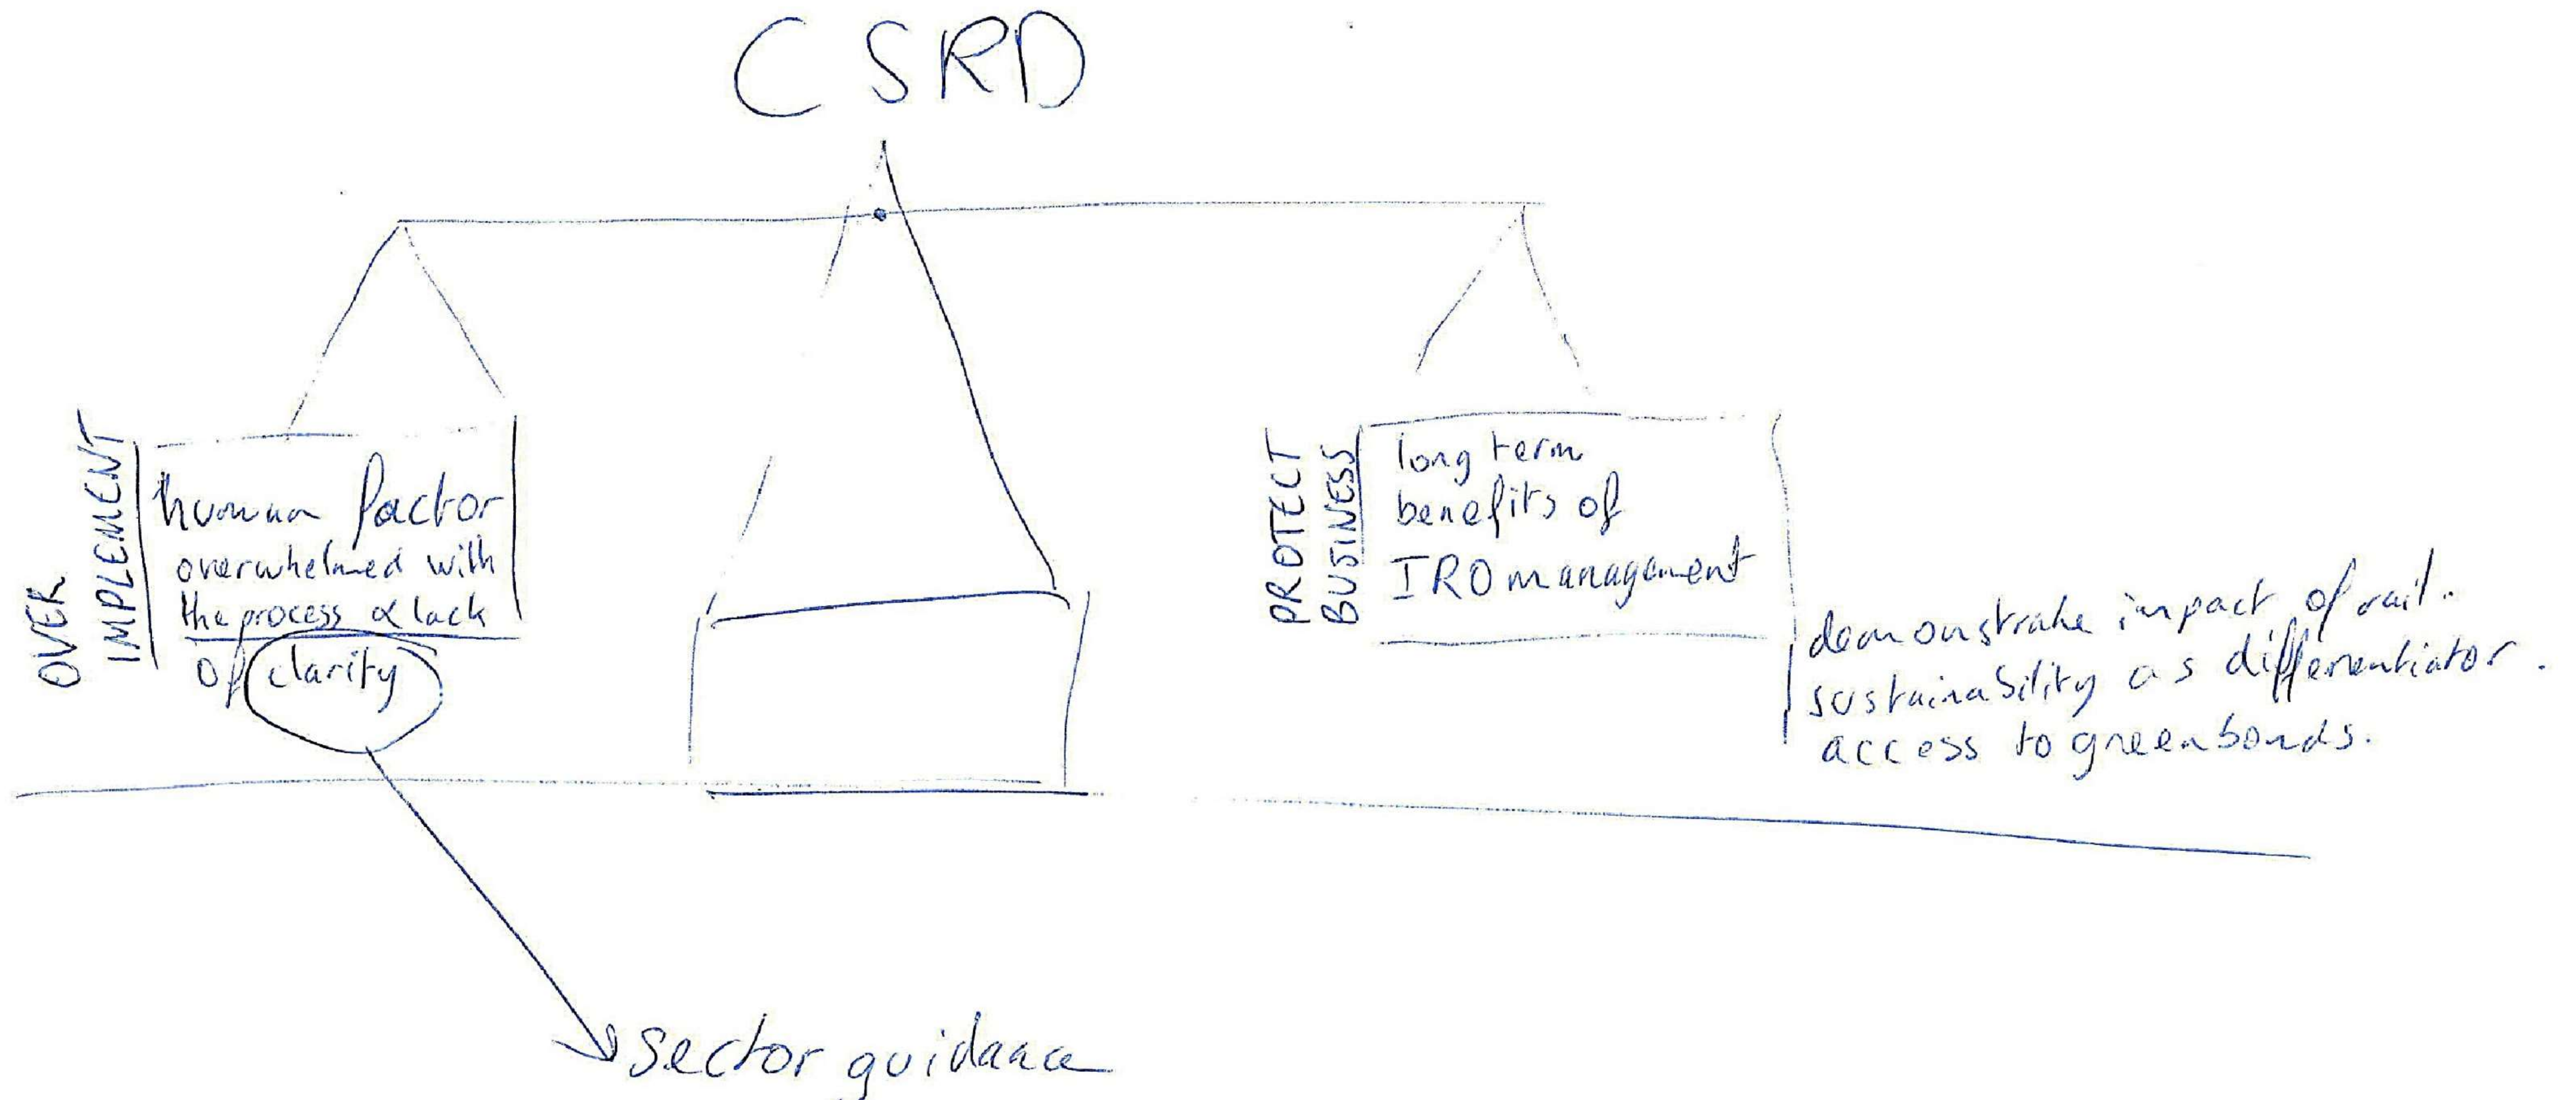 CSRD
OVER
IMPLEMENT
human factor
overwhelmed with
the process & lack
of clarity
PROTECT
BUSINESS
long term
benefits of
IRO management
demonstrate impact of rail.
sustainability as differentiator.
access to green bonds.
sector guidance